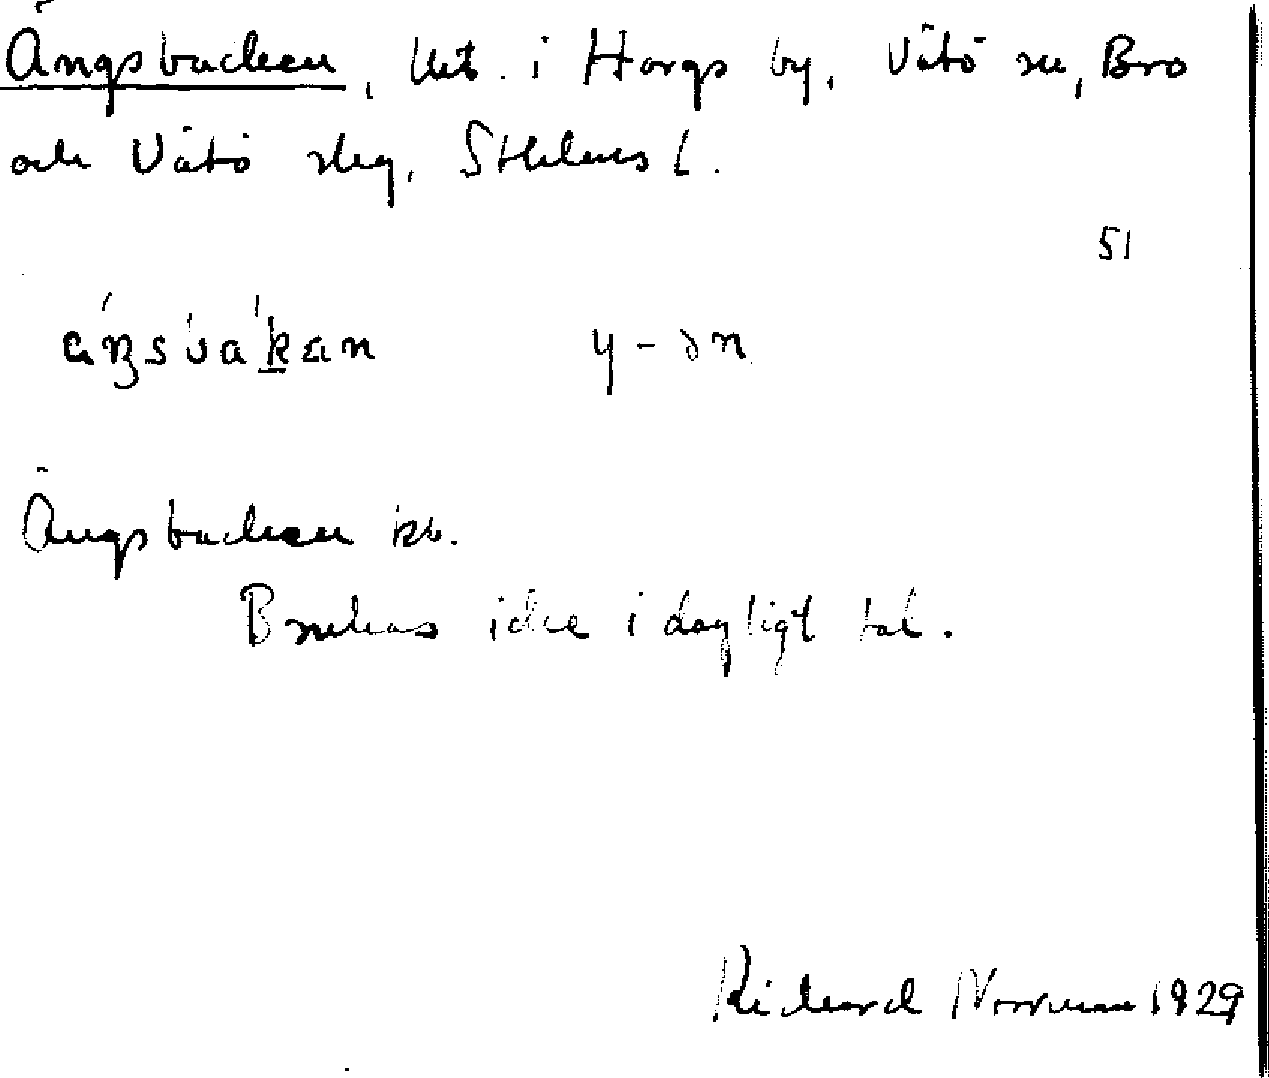 Ängsbacken, lht. i Hargs by, Vätö sn, Bro
och Vätö slg, Sthlms l.
51
y - ən
Ängsbacken kb.
Brukas icke i dagligt tal.
Richard Norrman 1929